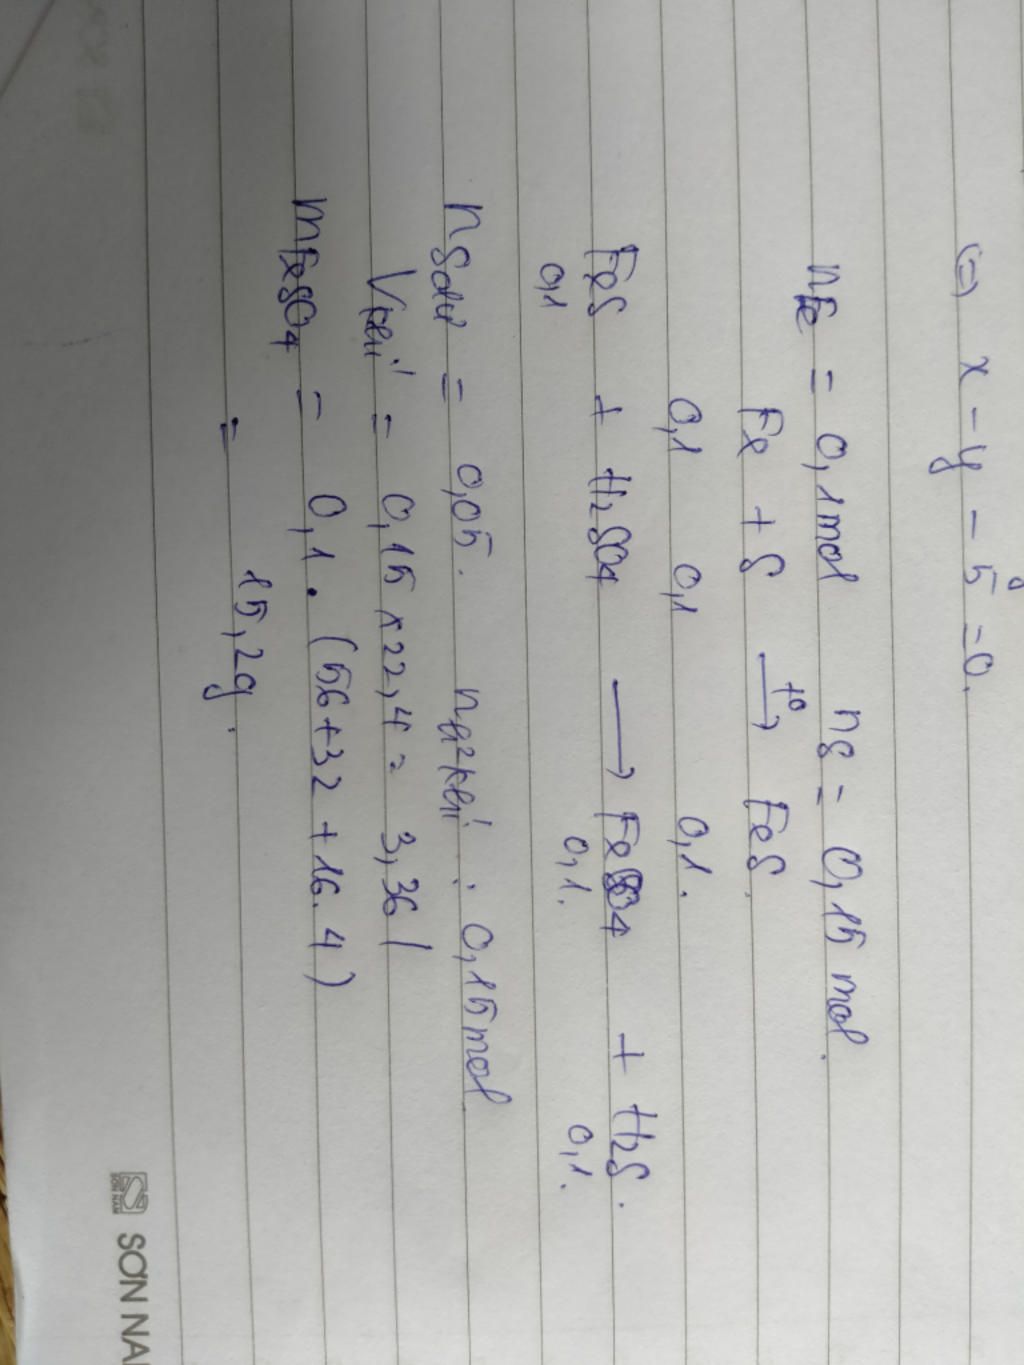 (=) x - y - 5 = 0.
nFe = 0,1mol nS = 0,15 mol.
Fe + S —t°→ FeS.
0,1 0,1 0,1.
FeS + H2SO4 ⟶ FeSO4 + H2S.
0,1 0,1. 0,1.
nS dư = 0,05. : 0,15mol
Vkhí = 0,15 x 22,4 = 3,36 l
mFeSO4 = 0,1 . (56+32 + 16.4)
= 15,2g.
SƠN NA